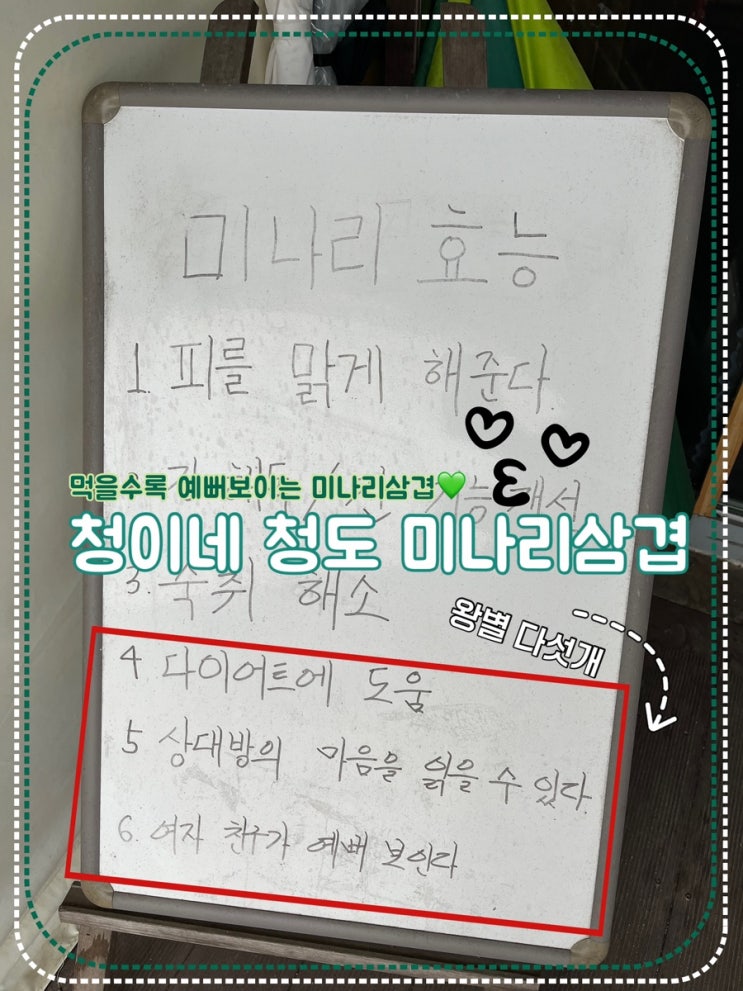 미나리 효능
1. 피를 맑게 해준다.
먹을수록 예뻐보이는 미나리삼겹💚
청이네 청도 미나리삼겹
3. 숙취 해소
왕별 다섯개
4 다이어트에 도움
5 상대방의 마음을 읽을 수 있다.
6. 여자 친구가 예뻐 보인다